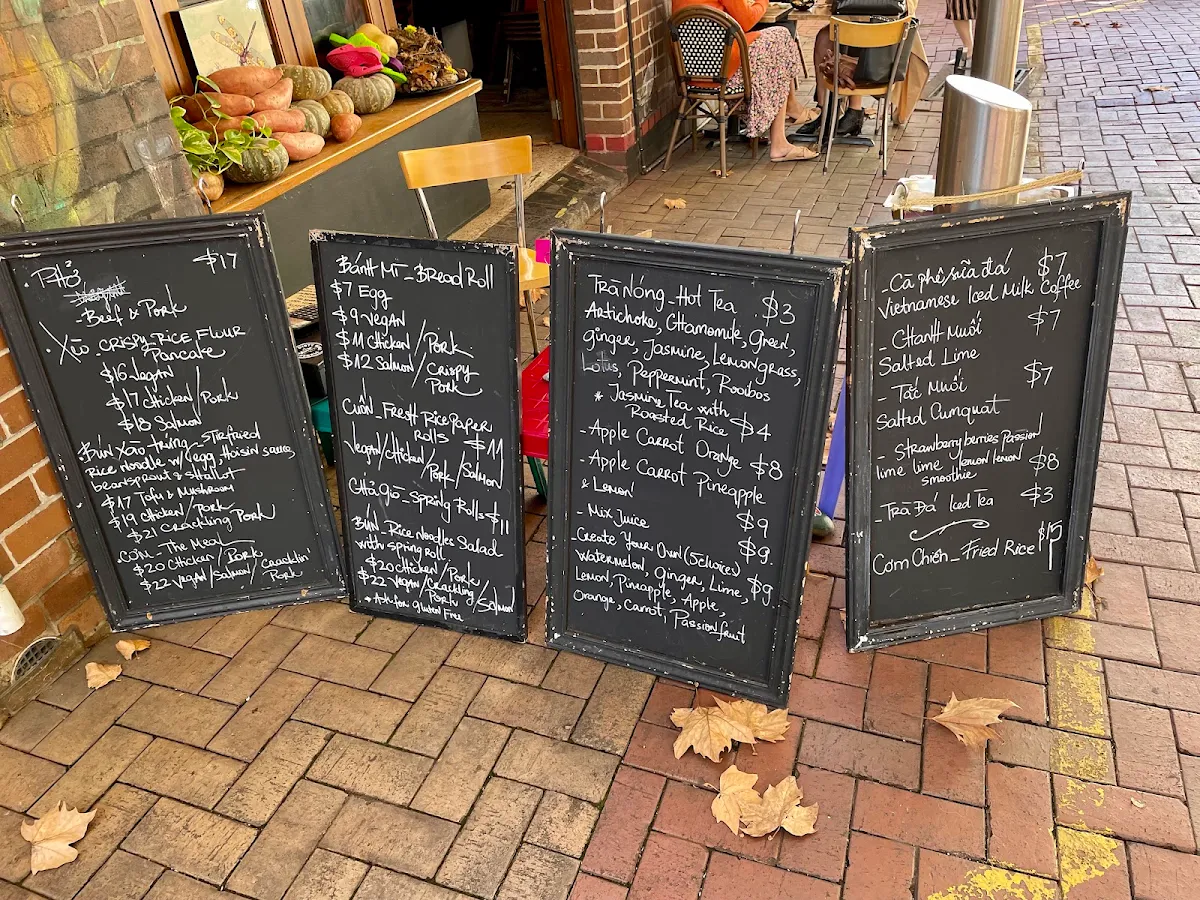 Phở $17
- Beef & Pork
Xèo - CRISPY RICE FLOUR
Pancake
$16 Vegan
$17 Chicken/Pork
$18 Salmon
Bún Xào trứng - Stirfried
Rice noodle w/ egg, Hoisin sauce,
beansprout & shallot
$17 Tofu & Mushroom
$19 Chicken/Pork
$21 Crackling Pork
Cơm - The Meal
$20 Chicken/Pork
$22 Vegan/Salmon/Cracklin'
Pork
Bánh Mì - Bread Roll
$7 Egg
$9 Vegan
$11 Chicken/Pork
$12 Salmon/Crispy
Pork
Cuốn - Fresh Rice Paper
Rolls $11
Vegan/Chicken/
Pork/Salmon
Chả Giò - Spring Rolls $11
Bún - Rice Noodles Salad
with spring roll
$20 Chicken/Pork
$22 Vegan/Crackling
Pork/Salmon
* Ask for Gluten Free
Trà Nóng - Hot Tea $3
Artichoke, Chamomile, Green,
Ginger, Jasmine, Lemongrass,
Lotus, Peppermint, Rooibos
* Jasmine Tea with
Roasted Rice $4
- Apple Carrot Orange $8
- Apple Carrot Pineapple
& Lemon $9
- Mix Juice $9
Create Your Own (5 choices)
Watermelon, Ginger, Lime, $9
Lemon, Pineapple, Apple,
Orange, Carrot, Passionfruit
- Cà phê sữa đá $7
Vietnamese Iced Milk Coffee
- Chanh Muối $7
Salted Lime
- Tắc Muối $7
Salted Cumquat
- Strawberry berries Passion
lime lime lemon lemon $8
smoothie
- Trà Đá Iced Tea $3
Cơm Chiên - Fried Rice $15